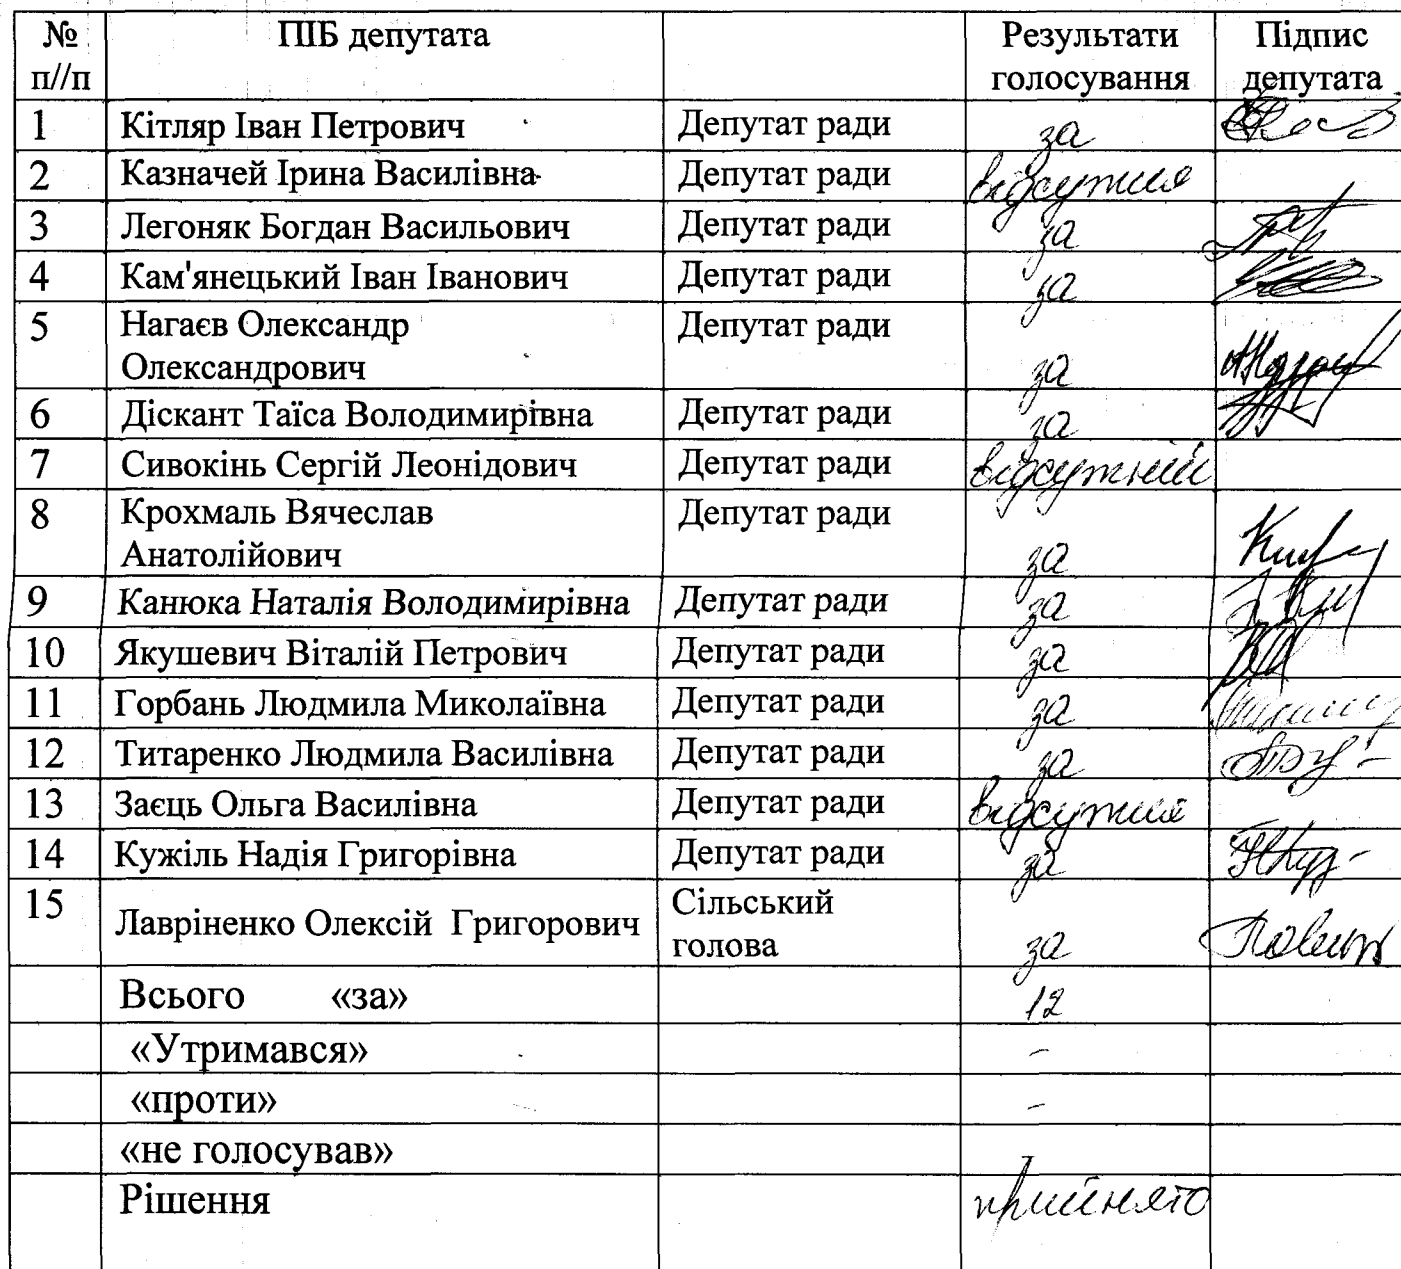 № п//п ПІБ депутата Результати голосування Підпис депутата
1 Кітляр Іван Петрович Депутат ради за
2 Казначей Ірина Василівна Депутат ради відсутня
3 Легоняк Богдан Васильович Депутат ради за
4 Кам'янецький Іван Іванович Депутат ради за
5 Нагаєв Олександр Депутат ради
Олександрович за
6 Діскант Таїса Володимирівна Депутат ради за
7 Сивокінь Сергій Леонідович Депутат ради відсутній
8 Крохмаль Вячеслав Депутат ради
Анатолійович за
9 Канюка Наталія Володимирівна Депутат ради за
10 Якушевич Віталій Петрович Депутат ради за
11 Горбань Людмила Миколаївна Депутат ради за
12 Титаренко Людмила Василівна Депутат ради за
13 Заєць Ольга Василівна Депутат ради відсутня
14 Кужіль Надія Григорівна Депутат ради за
15 Лавріненко Олексій Григорович Сільський голова за
Всього «за» 12
«Утримався» -
«проти» -
«не голосував»
Рішення прийнято